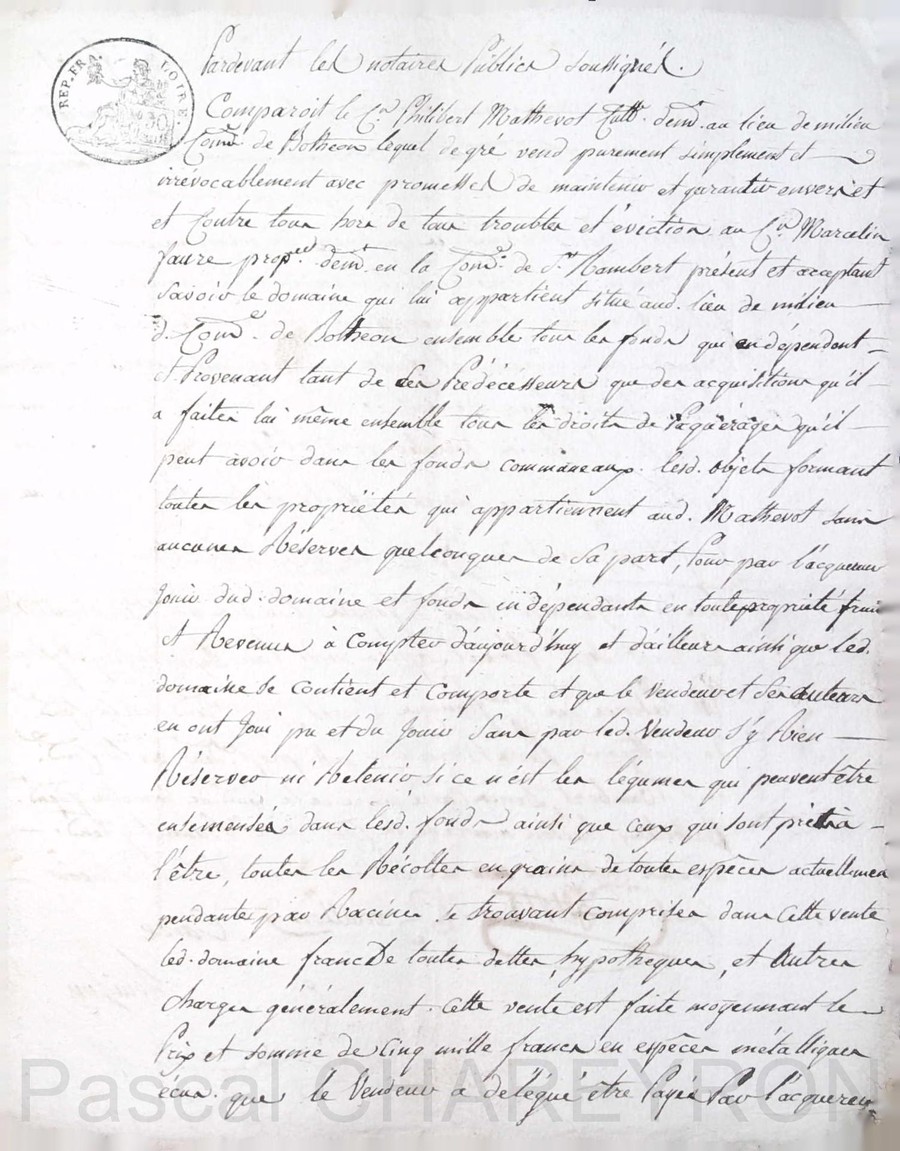 REP. FRA. LOIRE
Pardevant les notaires Publics soussignés.
Comparoit le C.en Philibert Mathevot Cult.r dem.t au lieu de milieu
Com.ne de Botheon lequel de gré vend purement simplement et
irrévocablement avec promesses de maintenir et garantir envers et
et Contre tous hors de tous troubles et éviction au C.en Marcelin
faure prop.re dem.t en la Com.e de S.t Rambert présent et acceptant
Savoir le domaine qui lui appartient situé aud. lieu de milieu
d. Com.e de Botheon ensemble tous les fonds qui en dependent
et Provenant tant de Ses Prédécesseurs que des acquisitions qu'il
a faites lui même ensemble tous les droits de Paquérages qu'il
peut avoir dans les fonds communeaux. lesd. objets formant
toutes les propriétés qui appartiennent aud. Mathevot sans
aucunes Réserves quelconques de Sa part, Pour par l'acquereur
Jouir dud. domaine et fonds en dépendants en toute propriété fruits
et Revenus à Compter d'aujourd'huy et d'ailleurs ainsi que led.
domaine Se Contient et Comporte et que le Vendeur et Ses auteurs
en ont Joui pu et du Jouir Sans par led. Vendeur s'y Rien
Réserver ni Retenir si ce n'est les légumes qui peuvent être
ensemensés dans lesd. fonds ainsi que ceux qui sont prêts à
l'être, toutes les Récoltes en grains de toutes espèces actuellement
pendantes par Racines se trouvant comprises dans Cette vente
led. domaine franc De toutes dettes, hypotheques, et Autres
charges généralement. Cette vente est faite moyennant le
Prix et somme de Cinq mille francs en espèces métalliques
écus. que le Vendeur a délégué être Payés Par l'acquereur
Pascal CHAREYRON